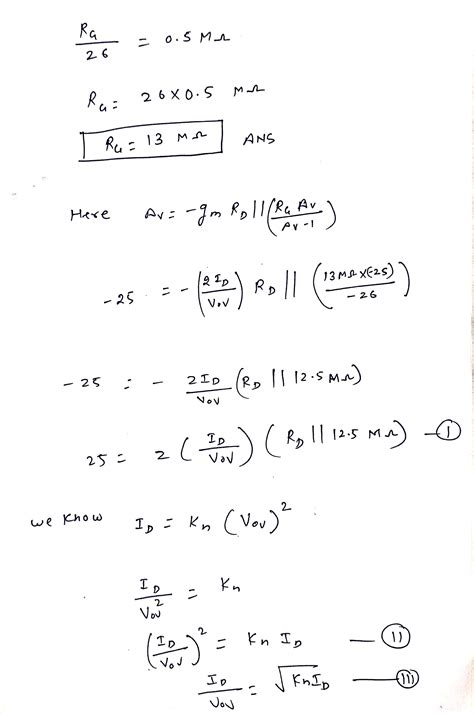 R_G/26 = 0.5 MΩ
R_G = 26×0.5 MΩ
R_G = 13 MΩ ANS
Here Av = -gm R_D || (R_G Av / Av-1)
-25 = -(2I_D/Vov) R_D || (13MΩ×(-25) / -26)
-25 = - 2I_D/Vov (R_D || 12.5 MΩ)
25 = 2 (I_D/Vov) (R_D || 12.5 MΩ) —Ⓘ
we know I_D = Kn (Vov)²
I_D/Vov² = Kn
(I_D/Vov)² = Kn I_D — (II)
I_D/Vov = √KnI_D — (III)